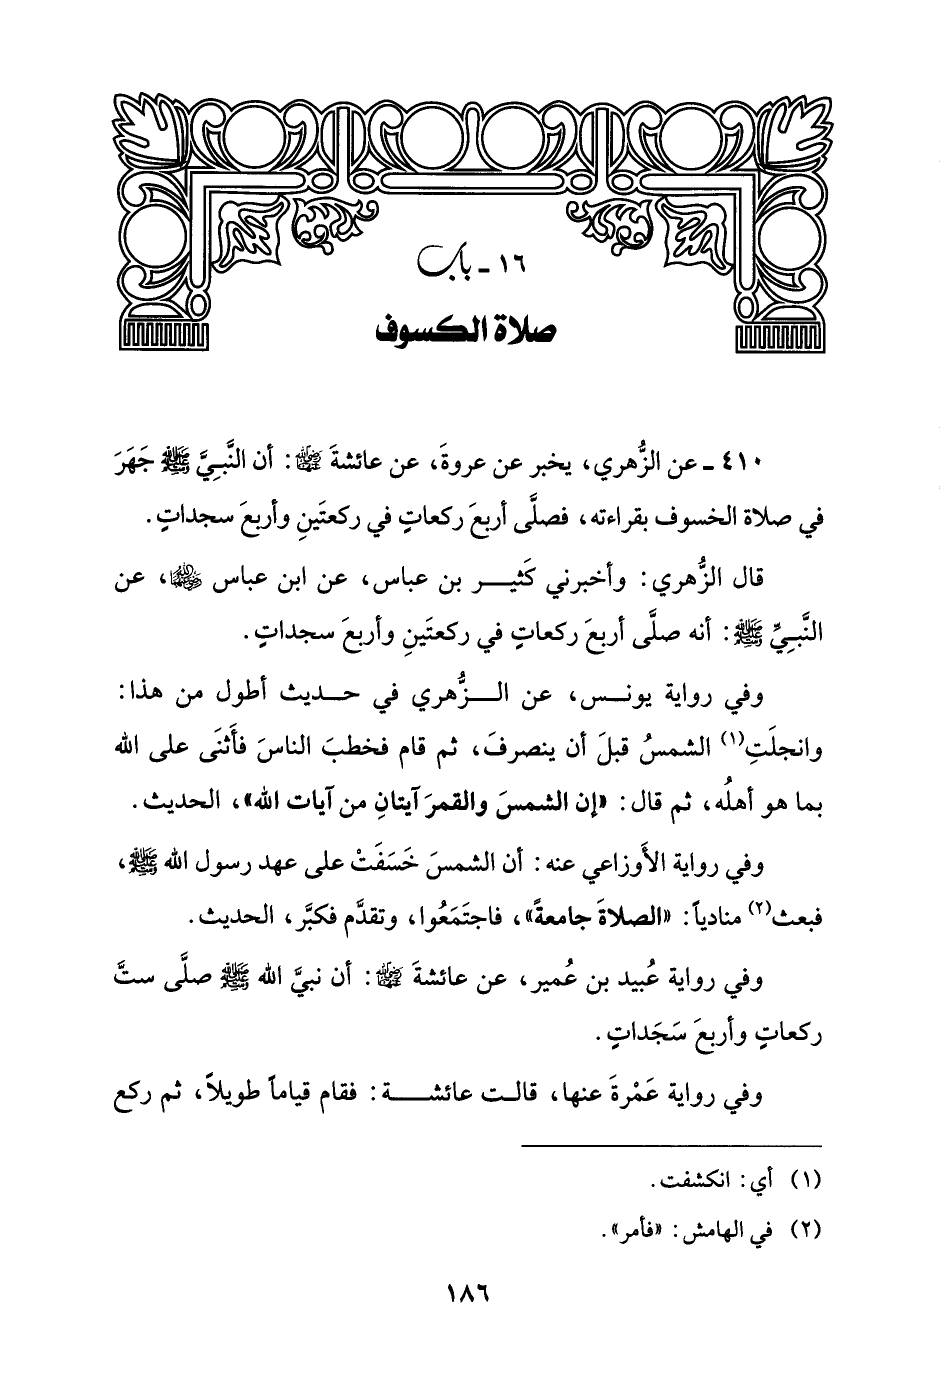 ١٦ - باب
صلاة الكسوف
٤١٠ - عن الزُّهري، يخبر عن عروةَ، عن عائشةَ رضي الله عنها: أن النَّبيَّ ﷺ جَهَرَ
في صلاة الخسوف بقراءته، فصلَّى أربعَ ركعاتٍ في ركعتَينِ وأربعَ سجداتٍ.
قال الزُّهري: وأخبرني كَثيـــر بن عباس، عن ابن عباس رضي الله عنهما، عن
النَّبيِّ ﷺ: أنه صلَّى أربعَ ركعاتٍ في ركعتَينِ وأربعَ سجداتٍ.
وفي رواية يونــس، عن الــزُّهري في حــديث أطول من هذا:
وانجلَتِ(١) الشمسُ قبلَ أن ينصرفَ، ثم قام فخطبَ الناسَ فأَثنَى على الله
بما هو أهلُه، ثم قال: «إن الشمسَ والقمرَ آيتانِ من آيات الله»، الحديث.
وفي رواية الأَوزاعي عنه: أن الشمسَ خَسَفَتْ على عهد رسول الله ﷺ،
فبعث(٢) منادياً: «الصلاةَ جامعةً»، فاجتَمَعُوا، وتقدَّم فكبَّر، الحديث.
وفي رواية عُبيد بن عُمير، عن عائشةَ رضي الله عنها: أن نبيَّ الله ﷺ صلَّى ستَّ
ركعاتٍ وأربعَ سَجَداتٍ.
وفي رواية عَمْرةَ عنها، قالــت عائشــــة: فقام قياماً طويلاً، ثم ركع
(١) أي: انكشفت.
(٢) في الهامش: «فأمر».
١٨٦